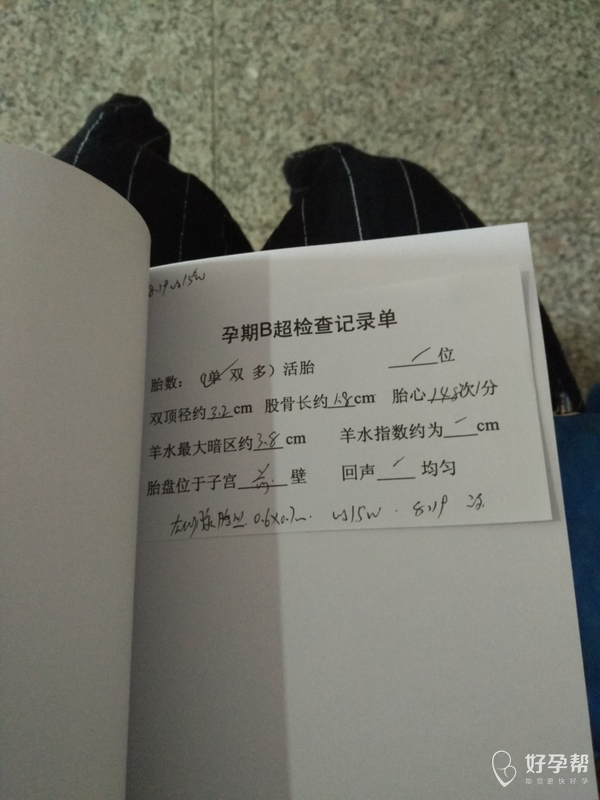 8.19 us15w
孕期B超检查记录单
胎数：（单 双 多）活胎 位
双顶径约3.2cm 股骨长约1.8cm 胎心148次/分
羊水最大暗区约3.8cm 羊水指数约为 cm
胎盘位于子宫 壁 回声 均匀
0.6x0.7 us15w. 8.19
好孕帮
助您更快好孕